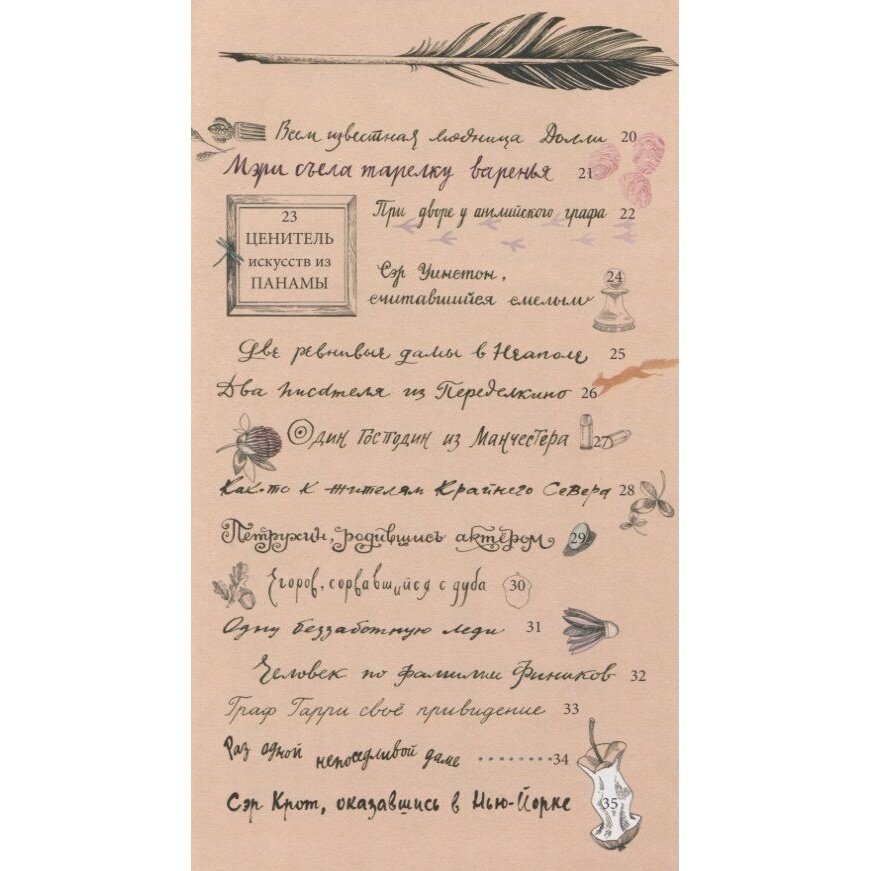 Всем известная модница Долли 20
Мэри съела тарелку варенья 21
При дворе у английского графа 22
23
ЦЕНИТЕЛЬ
искусств из
ПАНАМЫ
Сэр Уинстон, 24
считавшийся смелым
Две ревнивые дамы в Неаполе 25
Два писателя из Переделкино 26
Один господин из Манчестера 27
Как-то к жителям Крайнего Севера 28
Петрухин, родившись актёром 29
Егоров, сорвавшийся с дуба 30
Одну беззаботную леди 31
Человек по фамилии Фиников 32
Граф Гарри своё привидение 33
Раз одной непоседливой даме ........ 34
Сэр Крот, оказавшись в Нью-Йорке 35